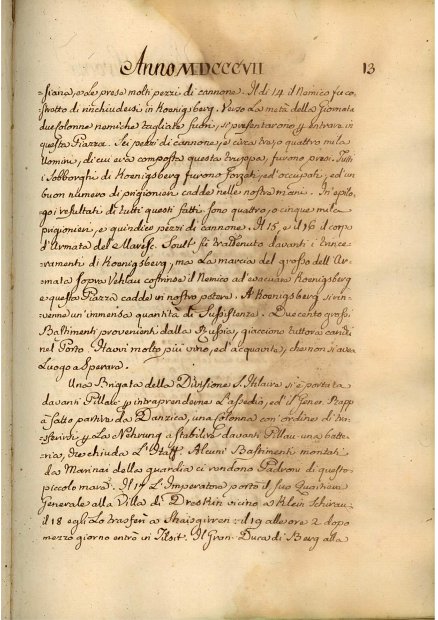 Anno MDCCCVII 13
=siana, e Le prese molti pezzi di cannone. Il di 14 il Nemico fu co=
=stretto di rinchiudersi in Koenigsberg. Verso La metà della Giornata
due colonne nemiche tagliate fuori, si presentarono p entrare in
questa Piazza. Sei pezzi di cannone, e circa tre, o quattro mila
Uomini, di cui era composta questa truppa, furono presi. Tutti
i Sobborghi di Koenigsberg furono forzati, ed occupati, ed un
buon numero di prigionieri cadde nelle nostre mani. In epilo,
go i resultati di tutti questi fatti sono quattro, o cinque mila
prigionieri, e quindici pezzi di cannone. Il 15, e il 16 il corpo
d'Armata del Maresc. Soult fù trattenuto davanti i trince=
=ramenti di Koenigsberg, ma La marcia del grosso dell'Ar=
=mata sopra Vehlau costrinse il Nemico ad evacuare Koenigsberg
e questa Piazza cadde in nostro potere. A Koenigsberg si rin=
=venne un'immensa quantità di Sussistenze. Duecento grossi
Bastimenti provenienti dalla Russia, giacciono tuttora carichi
nel Porto. Havvi molto più vino, ed acquavite, che non si avea
Luogo a Sperare.
Una Brigata della Divisione S. Hilaire si è portata
davanti Pillau p intraprenderne L'assedio, ed il Gener. Rapp
à fatto partire da Danzica, una colonna con ordine di tra=
=sferirsi p La Nehrung a stabilire davanti Pillau una batte=
=ria, che chiuda L'Haff. Alcuni Bastimenti montati
da Marinai della guardia ci rendono Padroni di questo
piccolo mare. Il 17 L'Imperatore portò il suo Quartiere
Generale alla Villa di Drosken vicino a Klein Schirau.
il 18 egli Lo trasferì a Skaisgirren: il 19 alle ore 2 dopo
mezzo giorno entrò in Tilsit. Il Gran Duca di Berg alla